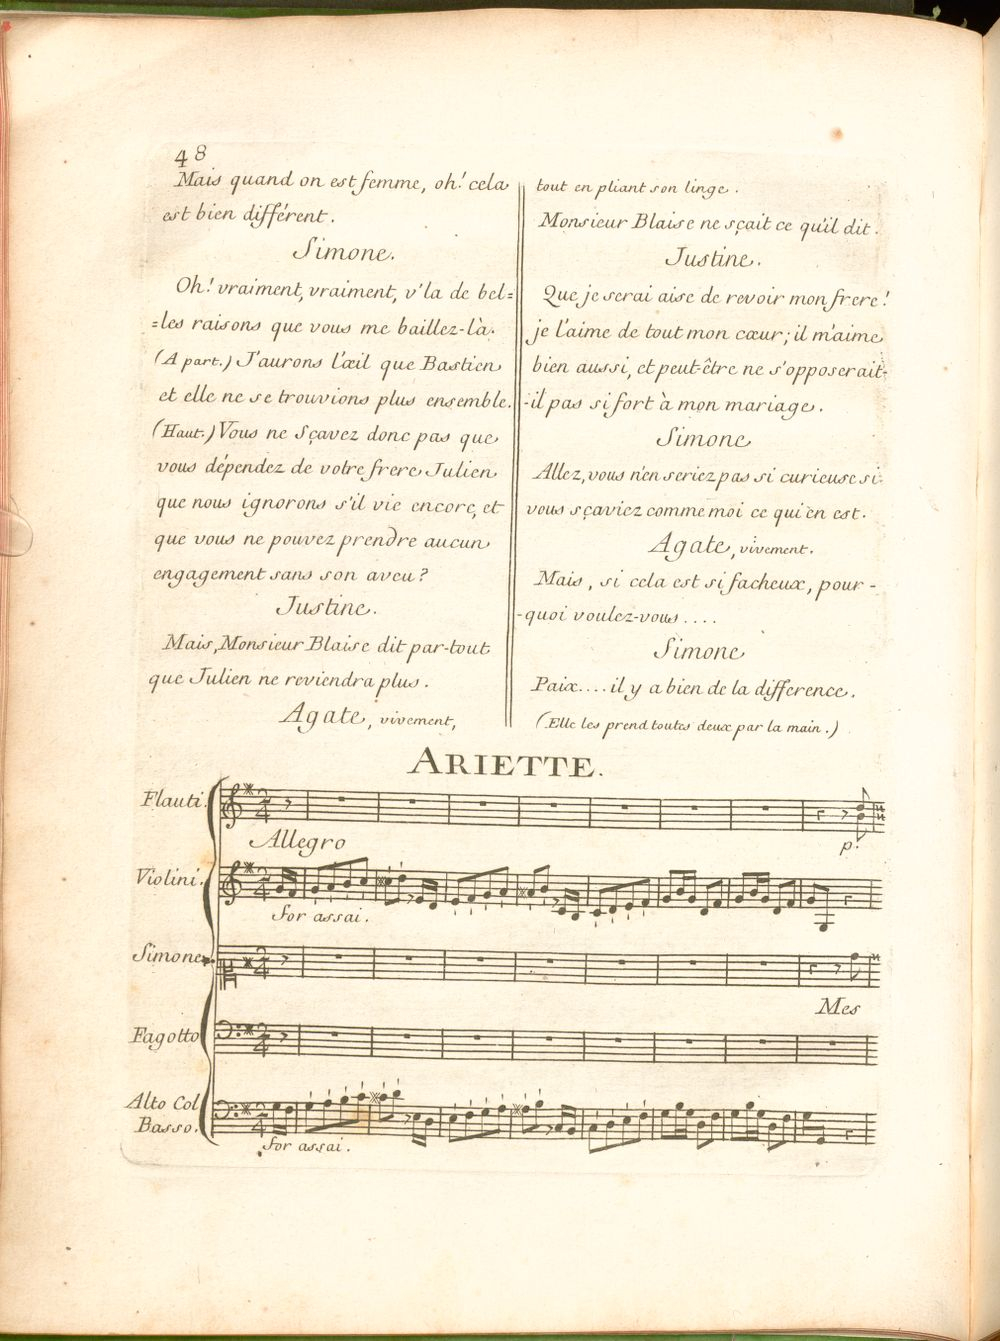 48
Mais quand on est femme, oh! cela
est bien différent.
Simone.
Oh! vraiment, vraiment, v'la de bel=
=les raisons que vous me baillez-là.
(A part.) J'aurons l'œil que Bastien
et elle ne se trouvions plus ensemble.
(Haut.) Vous ne sçavez donc pas que
vous dépendez de votre frere Julien
que nous ignorons s'il vie encore, et
que vous ne pouvez prendre aucun
engagement sans son aveu?
Justine.
Mais, Monsieur Blaise dit par-tout
que Julien ne reviendra plus.
Agate, vivement,
tout en pliant son linge.
Monsieur Blaise ne sçait ce qu'il dit.
Justine.
Que je serai aise de revoir mon frere!
je l'aime de tout mon cœur; il m'aime
bien aussi, et peut-être ne s'opposerait-
-il pas si fort à mon mariage.
Simone
Allez, vous n'en seriez pas si curieuse si
vous sçaviez comme moi ce qui en est.
Agate, vivement.
Mais, si cela est si facheux, pour-
-quoi voulez-vous....
Simone
Paix.... il y a bien de la difference.
(Elle les prend toutes deux par la main.)
ARIETTE.
Flauti.
Allegro
p.
Violini.
for assai.
Simone.
Mes
Fagotto
Alto Col
Basso.
for assai.